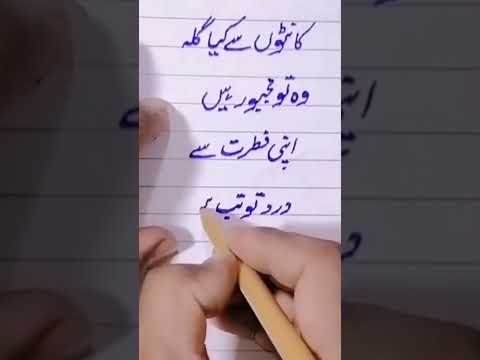 کانٹوں سے کیا گلہ
وہ تو مجبور ہیں
اپنی فطرت سے
درد تو تب